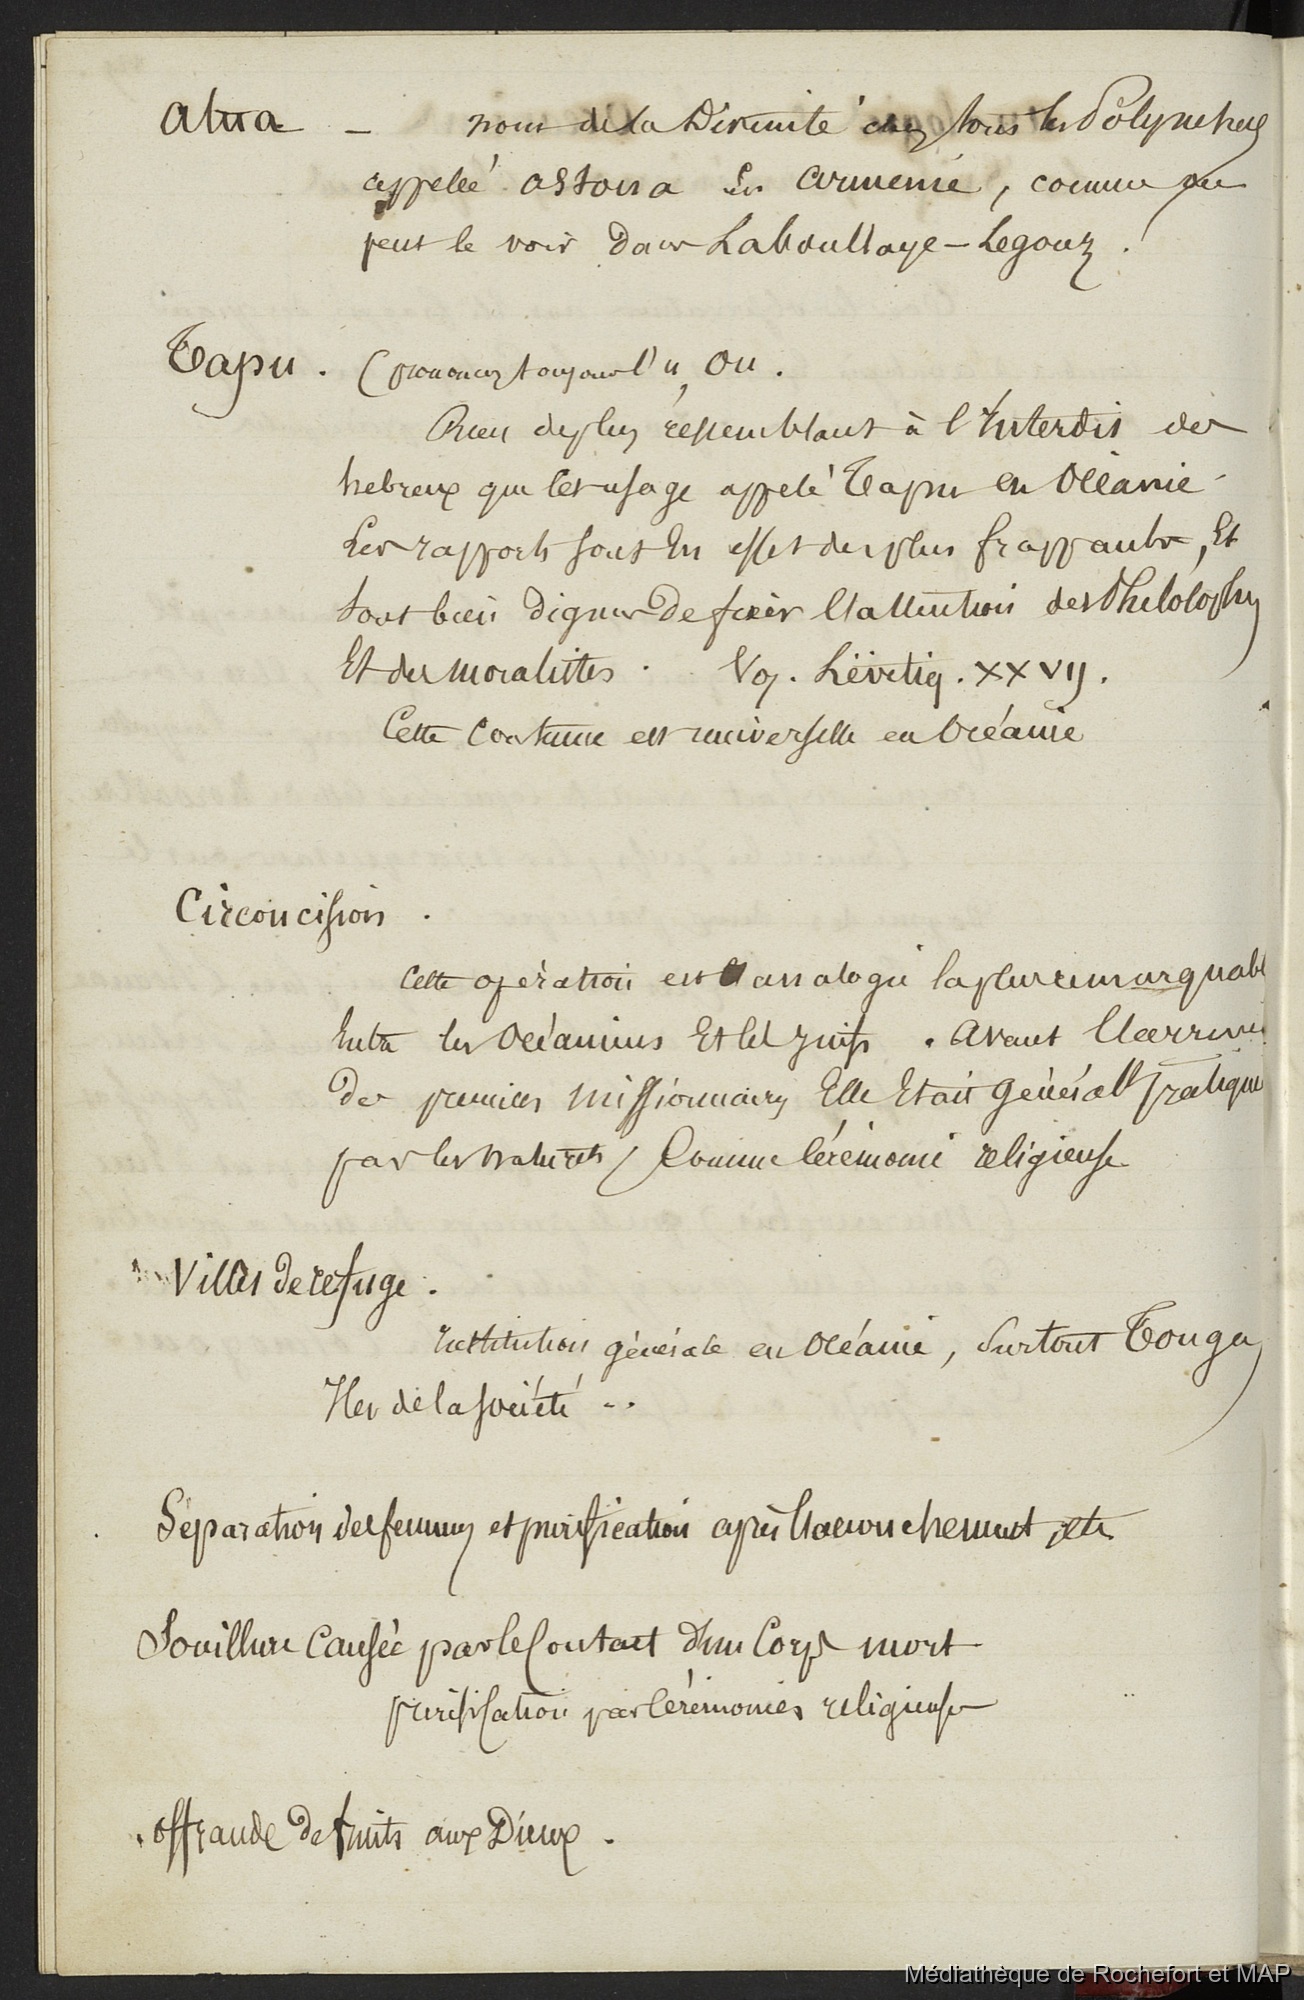 Atua – nom de la Divinité chez tous les Polynésiens
appelée astoua En armenie, comme on
peut le voir Dans Laboullaye-Legouz.
Tapu. (prononcez toujours l'u, ou.
Rien de plus ressemblant à l'Interdit des
hebreux que cet usage appelé Tapu en Océanie
Les rapports sont En effet des plus frappants, Et
sont bien Dignes De fixer l'attention des Philosophes
Et des moralistes. Voy. Lévitiq. XXVIJ.
Cette Coutume est universelle en Océanie
Circoncision.
Cette opération est l'analogie la plus remarquabl
Entre les Océaniens Et les Juifs. Avant l'arrivée
Des premiers missionnaires Elle Etait Généralt pratique
par les naturels, Comme Cérémonie religieuse
Villes De refuge.
Institution générale en Océanie, surtout Tonga,
Iles de la société ..
Séparation des femmes et purification après l'accouchement, etc
Souillure Causée par le Contact d'un Corps mort
purification par Cérémonies religieuses
offrande De fruits aux Dieux.
Médiathèque de Rochefort et MAP